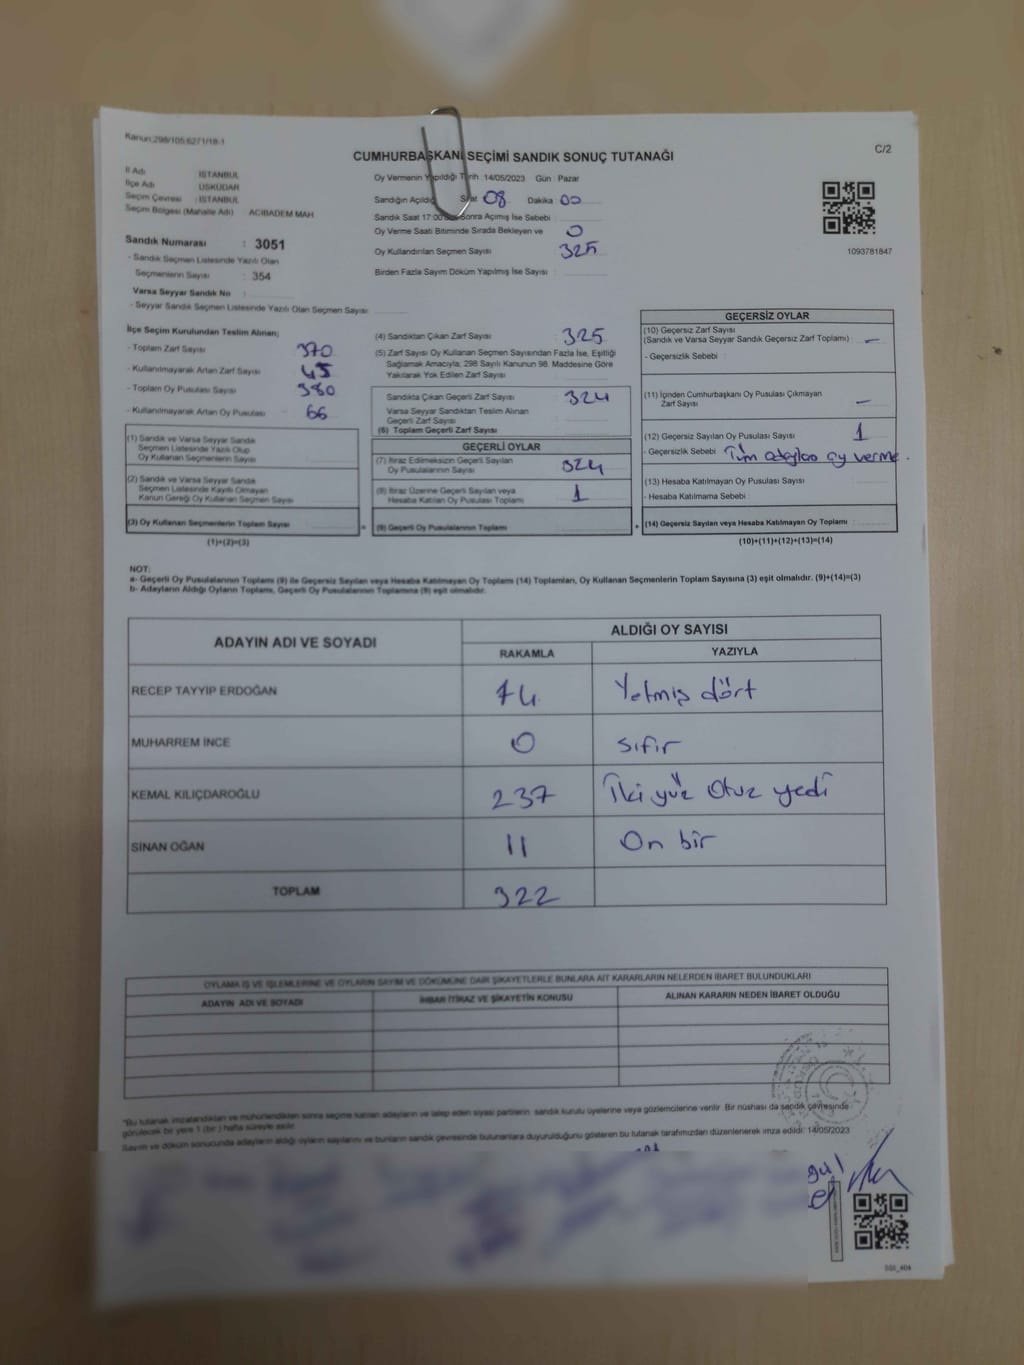 Kanun:298/105;6271/18-1
C/2
CUMHURBAŞKANI SEÇİMİ SANDIK SONUÇ TUTANAĞI
İl Adı : İSTANBUL
İlçe Adı : ÜSKÜDAR
Seçim Çevresi : İSTANBUL
Seçim Bölgesi (Mahalle Adı) : ACIBADEM MAH.
Sandık Numarası : 3051
- Sandık Seçmen Listesinde Yazılı Olan
Seçmenlerin Sayısı : 354
Varsa Seyyar Sandık No :
- Seyyar Sandık Seçmen Listesinde Yazılı Olan Seçmen Sayısı :
Oy Vermenin Yapıldığı Tarih :14/05/2023 Gün : Pazar
Sandığın Açıldığı Saat 08 Dakika 00
Sandık Saat 17:00'den Sonra Açımış İse Sebebi :
Oy Verme Saati Bitiminde Sırada Bekleyen ve 0
Oy Kullandırılan Seçmen Sayısı : 325
Birden Fazla Sayım Döküm Yapılmış İse Sayısı :
1093781847
İlçe Seçim Kurulundan Teslim Alınan;
- Toplam Zarf Sayısı : 370
- Kullanılmayarak Artan Zarf Sayısı : 45
- Toplam Oy Pusulası Sayısı : 380
- Kullanılmayarak Artan Oy Pusulası : 66
(1) Sandık ve Varsa Seyyar Sandık
Seçmen Listesinde Yazılı Olup
Oy Kullanan Seçmenlerin Sayısı :
(2) Sandık ve Varsa Seyyar Sandık
Seçmen Listesinde Kayıtlı Olmayan
Kanun Gereği Oy Kullanan Seçmen Sayısı :
(3) Oy Kullanan Seçmenlerin Toplam Sayısı :
(1)+(2)=(3)
(4) Sandıktan Çıkan Zarf Sayısı : 325
(5) Zarf Sayısı Oy Kullanan Seçmen Sayısından Fazla İse, Eşitliği
Sağlamak Amacıyla, 298 Sayılı Kanunun 98. Maddesine Göre
Yakılarak Yok Edilen Zarf Sayısı :
Sandıkta Çıkan Geçerli Zarf Sayısı : 324
Varsa Seyyar Sandıktan Teslim Alınan
Geçerli Zarf Sayısı :
(6) Toplam Geçerli Zarf Sayısı :
GEÇERLİ OYLAR
(7) İtiraz Edilmeksizin Geçerli Sayılan
Oy Pusulalarının Sayısı : 324
(8) İtiraz Üzerine Geçerli Sayılan veya
Hesaba Katılan Oy Pusulaları Toplamı : 1
(9) Geçerli Oy Pusulalarının Toplamı :
GEÇERSİZ OYLAR
(10) Geçersiz Zarf Sayısı
(Sandık ve Varsa Seyyar Sandık Geçersiz Zarf Toplamı) : –
- Geçersizlik Sebebi :
(11) İçinden Cumhurbaşkanı Oy Pusulası Çıkmayan
Zarf Sayısı : –
(12) Geçersiz Sayılan Oy Pusulası Sayısı : 1
- Geçersizlik Sebebi : Tüm adaylara oy verme.
(13) Hesaba Katılmayan Oy Pusulası Sayısı :
- Hesaba Katılmama Sebebi :
(14) Geçersiz Sayılan veya Hesaba Katılmayan Oy Toplamı :
(10)+(11)+(12)+(13)=(14)
NOT:
a- Geçerli Oy Pusulalarının Toplamı (9) ile Geçersiz Sayılan veya Hesaba Katılmayan Oy Toplamı (14) Toplamları, Oy Kullanan Seçmenlerin Toplam Sayısına (3) eşit olmalıdır. (9)+(14)=(3)
b- Adayların Aldığı Oyların Toplamı, Geçerli Oy Pusulalarının Toplamına (9) eşit olmalıdır.
ADAYIN ADI VE SOYADI
ALDIĞI OY SAYISI
RAKAMLA YAZIYLA
RECEP TAYYİP ERDOĞAN 74 Yetmiş dört
MUHARREM İNCE 0 sıfır
KEMAL KILIÇDAROĞLU 237 İki yüz otuz yedi
SİNAN OĞAN 11 On bir
TOPLAM 322
OYLAMA İŞ VE İŞLEMLERİNE VE OYLARIN SAYIM VE DÖKÜMÜNE DAİR ŞİKAYETLERLE BUNLARA AİT KARARLARIN NELERDEN İBARET BULUNDUKLARI
ADAYIN ADI VE SOYADI İHBAR İTİRAZ VE ŞİKAYETİN KONUSU ALINAN KARARIN NEDEN İBARET OLDUĞU
"Bu tutanak imzalandıktan ve mühürlendikten sonra seçime katılan adayların ve talep eden siyasi partilerin sandık kurulu üyelerine veya gözlemcilerine verilir. Bir nüshası da sandık çevresinde
görülecek bir yere 1 (bir) hafta süreyle asılır.
Sayım ve döküm sonucunda adayların aldığı oyların sayılarını ve bunların sandık çevresinde bulunanlara duyurulduğunu gösteren bu tutanak tarafımızdan düzenlenerek imza edildi. 14/05/2023